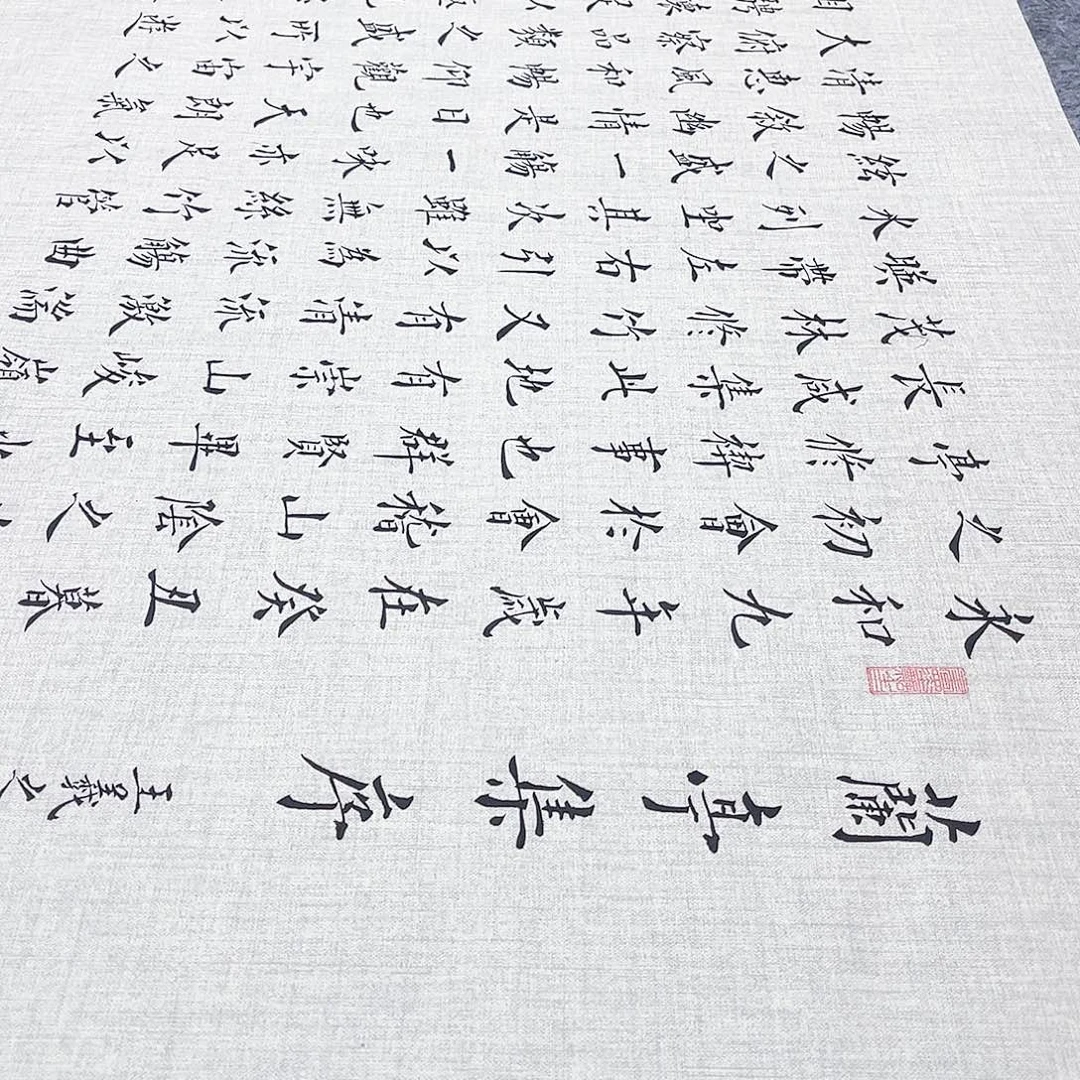 蘭亭集序
王羲之
永和九年歲在癸丑暮
之初會於會稽山陰之
亭修禊事也群賢畢至少
長咸集此地有崇山峻嶺
茂林修竹又有清流激湍
暎帶左右引以為流觴曲
水列坐其次雖無絲竹管
絃之盛一觴一咏亦足以
暢敘幽情是日也天朗氣
清惠風和暢仰觀宇宙之
大俯察品類之盛所以遊
目騁懷足